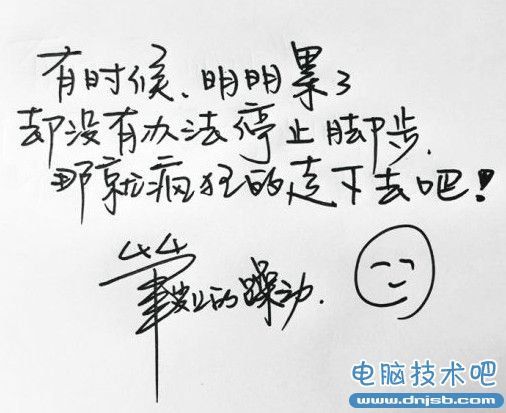 有时候、明明累了
却没有办法停止脚步.
那就疯狂的走下去吧!
笔尖上的躁动.
电脑技术吧
www.dnjsb.com